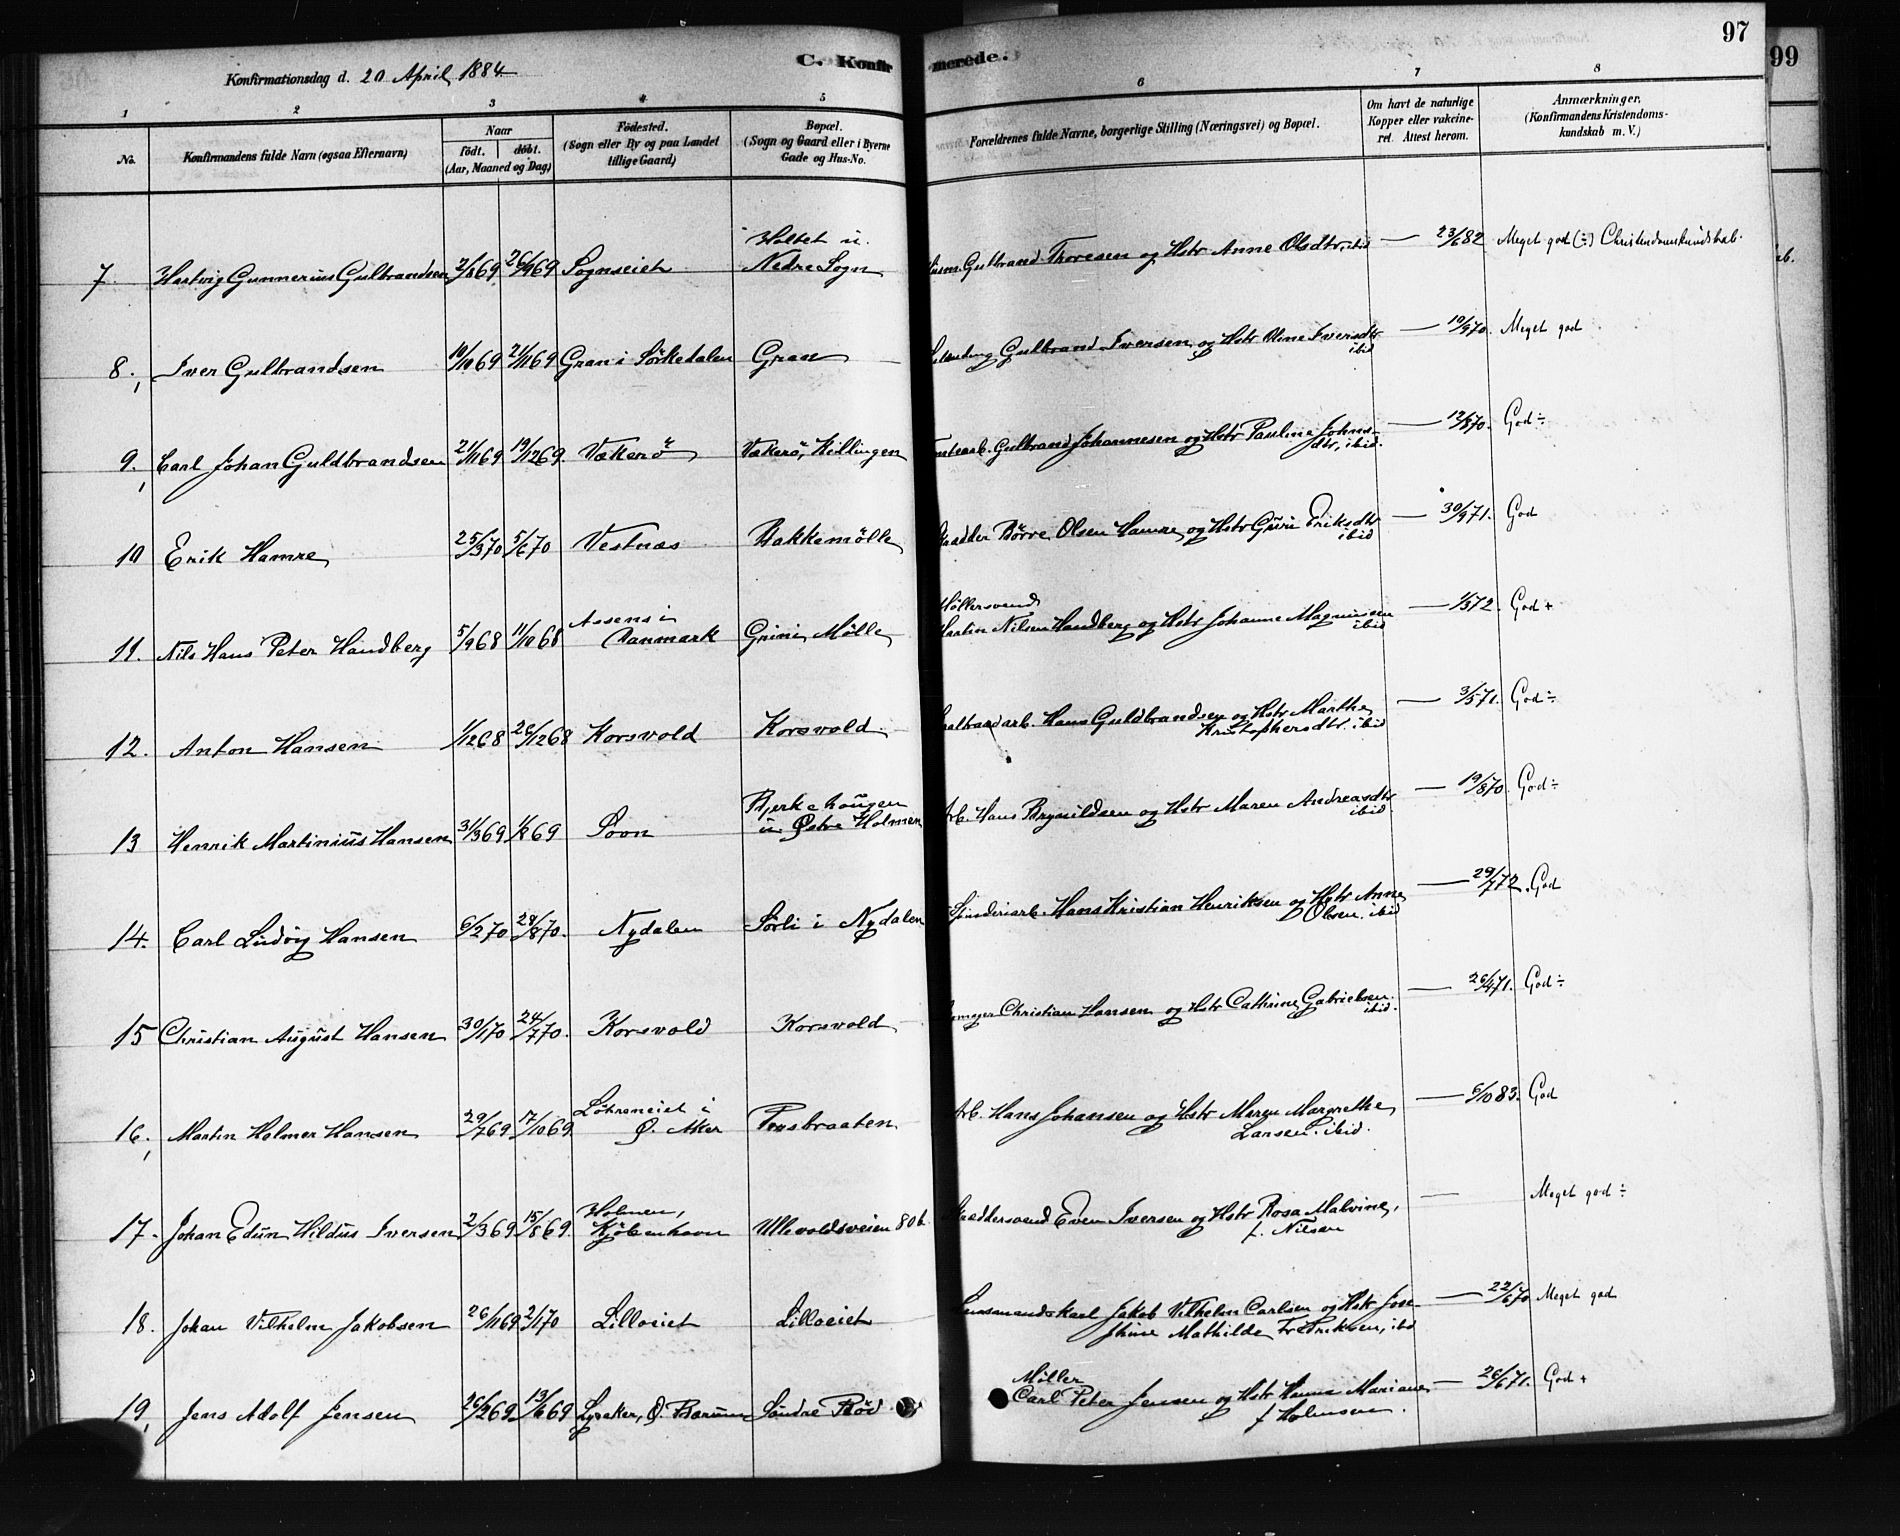 97
99
Konfirmationsdag d. 20 April 1884
C. Konfir
merede.
1 2 3 4 5 6 7 8
No.
Konfirmandens fulde Navn (ogsaa Efternavn)
Naar
født. døbt.
(Aar, Maaned og Dag)
Fødested.
(Sogn eller By og paa Landet
tillige Gaard)
Bopæl.
(Sogn og Gaard eller i Byerne
Gade og Hus-No.
Forældrenes fulde Navne, borgerlige Stilling (Næringsvei) og Bopæl.
Om havt de naturlige
Kopper eller vakcine-
ret. Attest herom.
Anmærkninger.
(Konfirmandens Kristendoms-
kundskab m. V.)
7. Hartvig Gunnerius Gulbrandsen 2/8 69 26/9 69 Sognseiet Holtet u.
Nedre Sogn
Husm. Gulbrand Thoresen og Hstr Anne Olsdtr, ibid — 23/6 82 Meget god (÷) Christendomskundskab.
8. Iver Gulbrandsen 10/10 69 21/11 69 Gran i Sörkedalen Gran
Gulbrand Iversen og Hstr Oline Iversdtr
ibid — 10/9 70. Meget god
9. Carl Johan Guldbrandsen 21/11 69 19/12 69 Vækerö Vækerö, Killingen
Gulbrand Johannesen og Hstr Pauline Johns-
dtr, ibid. — 12/8 70. God ÷
10 Erik Hamre 25/3 70 5/6 70 Vestnæs Bakkemölle
Börre Olsen Hamre og Hstr Guri Eriksdtr
ibid — 30/9 71. God
11. Nils Hans Peter Handberg 5/9 68 11/10 68 Assens i
Danmark Grini Mølle
Møllersvend
Martin Nilsen Handberg og Hstr Johanne Magnussen
ibid — 1/5 72. God +
12. Anton Hansen 1/12 68 26/12 68 Korsvold Korsvold
Hans Guldbrandsen og Hstr Marthe
Kristophersdtr. ibid — 3/5 71. God ÷
13 Henrik Martinius Hansen 31/3 69 1/8 69 Sogn Bjerkehaugen
u. Østre Holmen
Arb. Hans Brynildsen og Hstr Maren Andreasdtr
ibid. — 19/8 70. God ÷
14. Carl Ludvig Hansen 6/2 70 28/8 70. Nydalen Sörli i Nydalen
Spinderiarb. Hans Kristian Henriksen og Hstr Anne
Olsen. ibid — 29/7 72. God
15 Christian August Hansen 30/1 70 24/7 70. Korsvold Korsvold
Christian Hansen og Hstr Cathrine Gabrielsen.
ibid. — 26/4 71. God ÷
16. Martin Holmer Hansen 29/7 69 17/10 69 Løhreneiet i
Ø. Aker
Arb. Hans Johansen og Hstr Maren Margrethe
Larsen. ibid. — 6/10 83. God
17. Johan Edun Hildus Iversen 2/3 69 15/8 69. Holmen,
Kjöbenhavn Ullevoldsveien 80b.
Skræddersvend Even Iversen og Hstr Rosa Malvine,
f. Nilsen — Meget god ÷
18. Johan Vilhelm Jakobsen 26/11 69 2/1 70 Lilloeiet Lilloeiet
Jakob Vilhelm Carlsen og Hstr Jose-
phine Mathilde Fredriksen, ibid — 22/6 70 Meget god
19. Jens Adolf Jensen 26/2 69. 13/6 69 Lysaker, Ø. Bærum Söndre Röd
Møller
Carl Peter Jensen og Hstr Hanna Mariane
f. Holmsen. — 26/6 71. God +